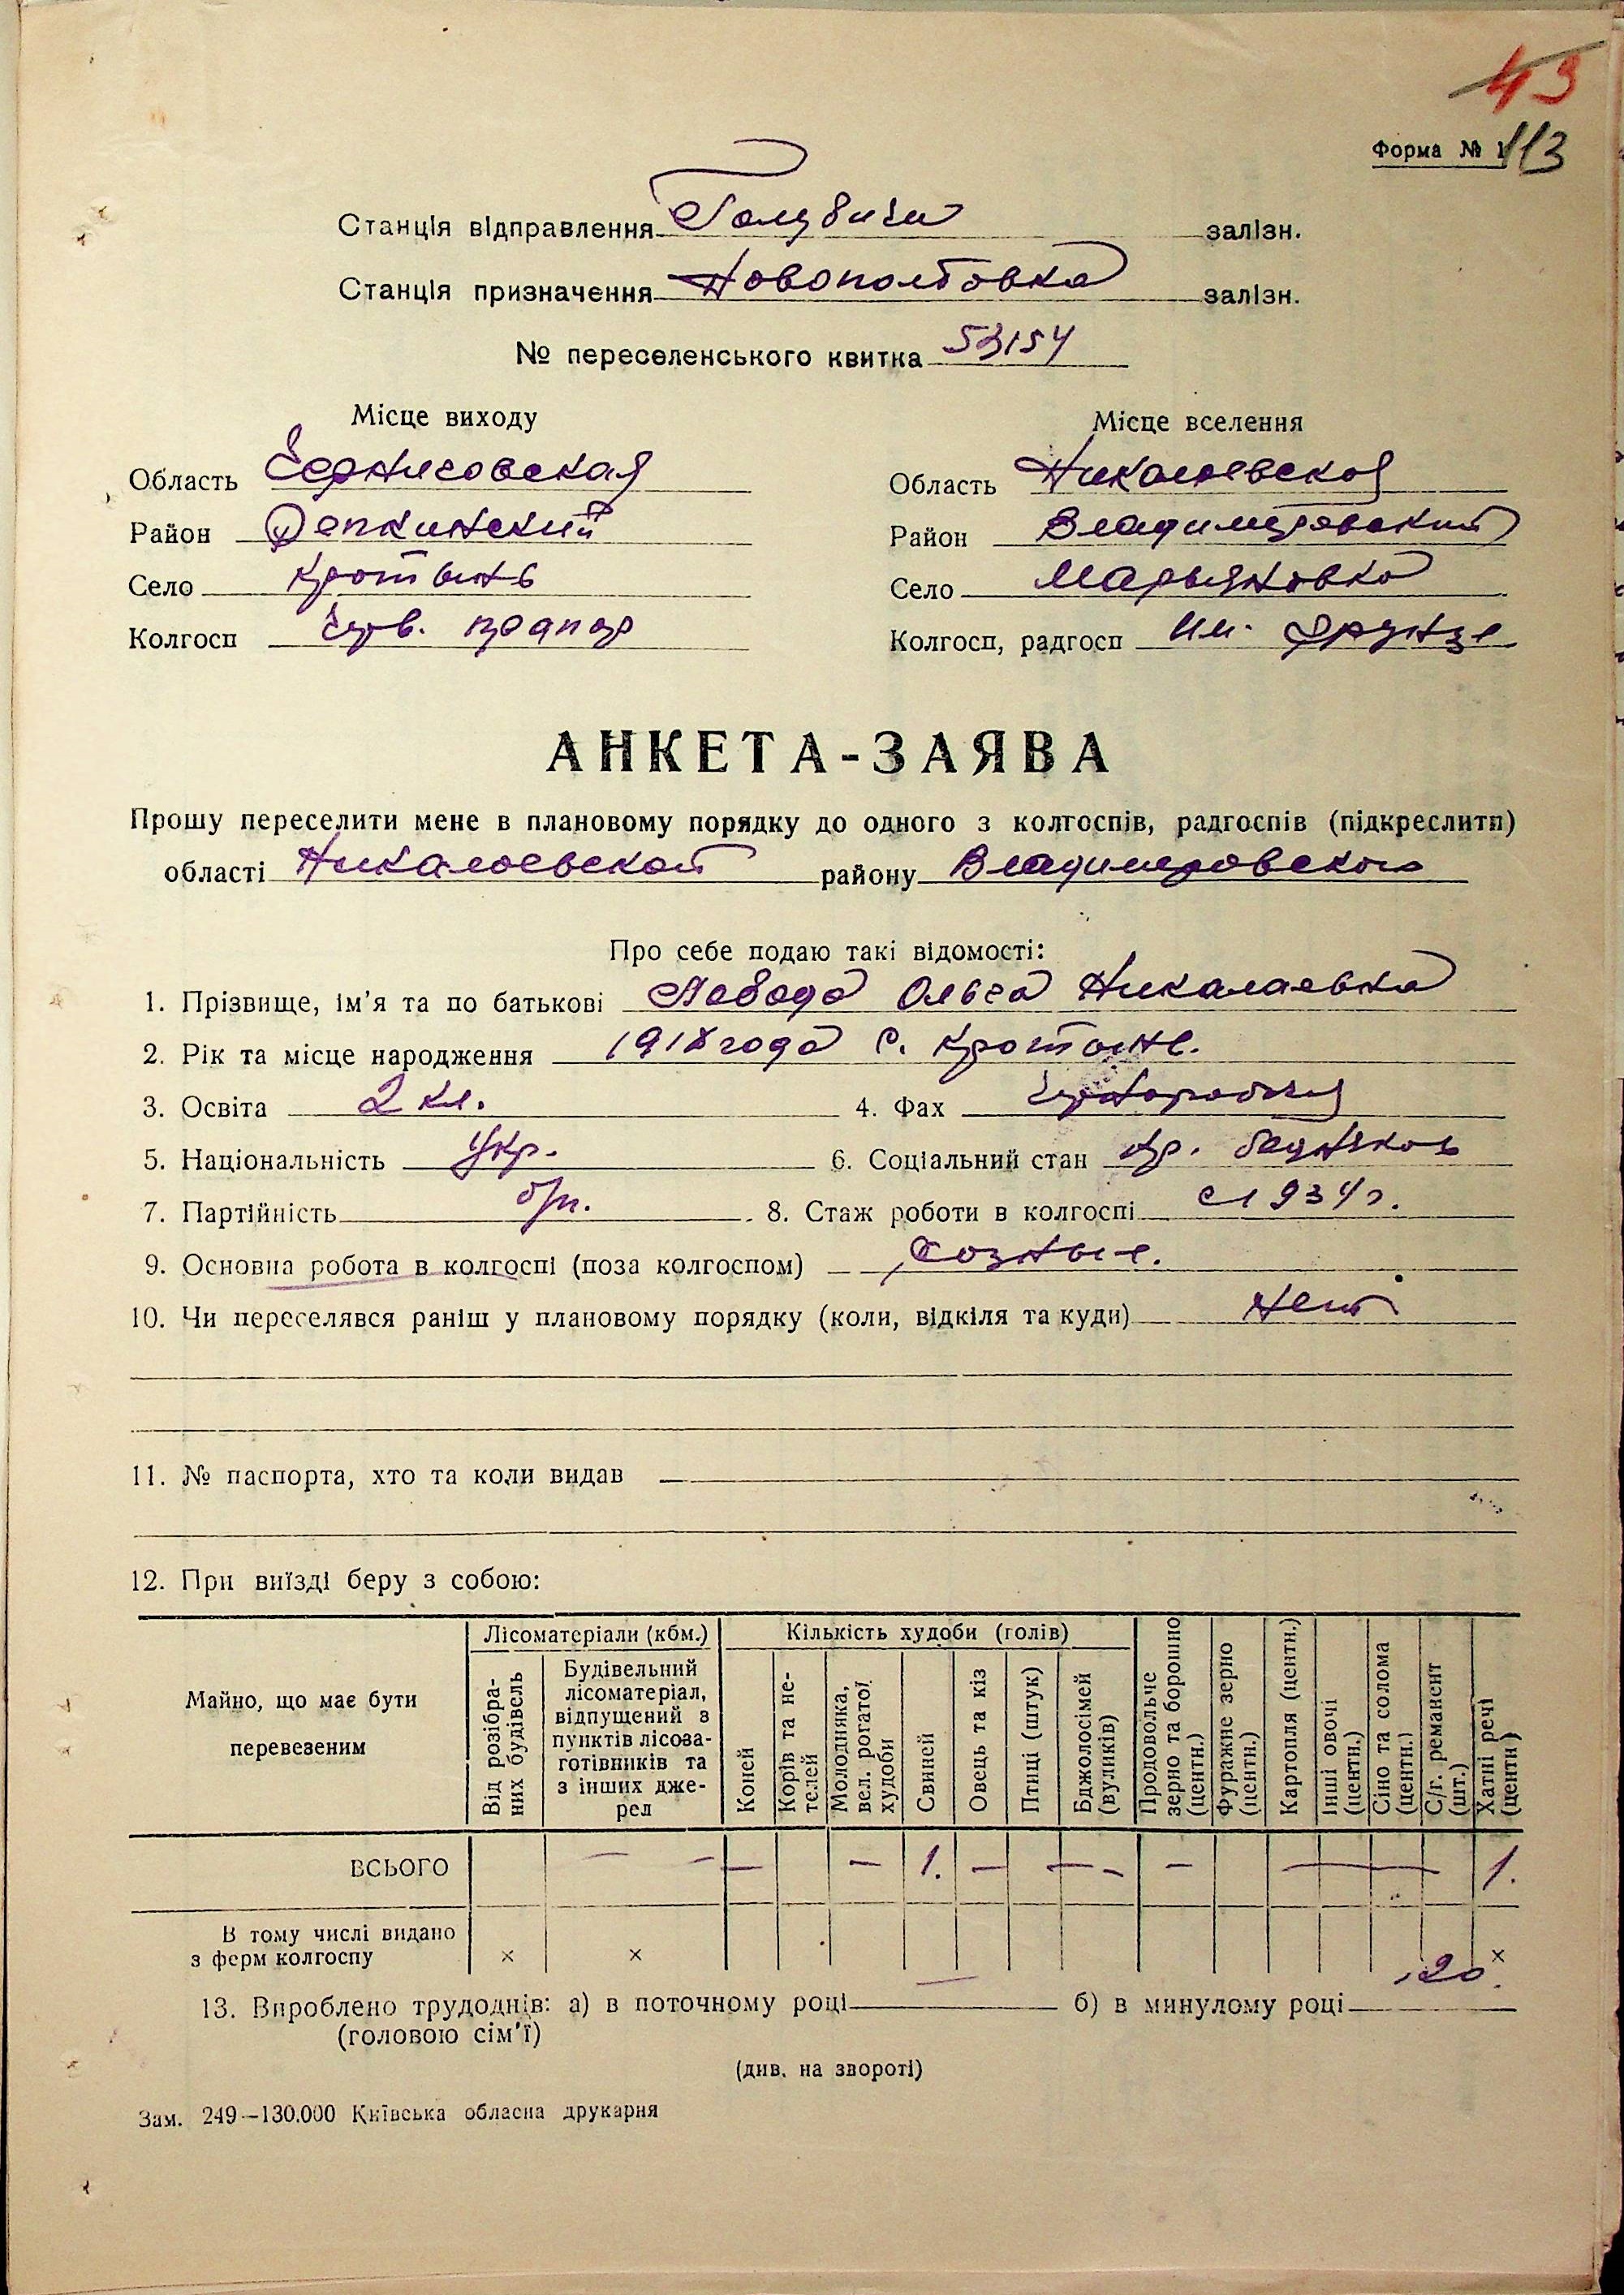 43
Форма № 1 113
Станція відправлення Голубичи залізн.
Станція призначення Новополтовка залізн.
№ переселенського квитка 53154
Місце виходу
Місце вселення
Область Черниговская
Область Николаевской
Район Репкинский
Район Владимировский
Село Кротынь
Село Марьяновка
Колгосп Черв. прапор
Колгосп, радгосп им. Фрунзе
АНКЕТА-ЗАЯВА
Прошу переселити мене в плановому порядку до одного з колгоспів, радгоспів (підкреслити)
області Николаевской району Владимировского
Про себе подаю такі відомості:
1. Прізвище, ім'я та по батькові Ольга Николаевна
2. Рік та місце народження 1918 года с. Кротынь.
3. Освіта 2 кл. 4. Фах Чернорабочая
5. Національність Укр. 6. Соціальний стан кр. бедняков
7. Партійність б/п. 8. Стаж роботи в колгоспі с 1934 г.
9. Основна робота в колгоспі (поза колгоспом)
10. Чи переселявся раніш у плановому порядку (коли, відкіля та куди) Нет
11. № паспорта, хто та коли видав
12. При виїзді беру з собою:
Майно, що має бути перевезеним
Лісоматеріали (кбм.)
Кількість худоби (голів)
Від розібраних будівель
Будівельний лісоматеріал, відпущений з пунктів лісозаготівників та з інших джерел
Коней
Корів та нетелей
Молодняка, вел. рогатої худоби
Свиней
Овець та кіз
Птиці (штук)
Бджолосімей (вуликів)
Продовольче зерно та борошно (центн.)
Фуражне зерно (центн.)
Картопля (центн.)
Інші овочі (центн.)
Сіно та солома (центн.)
С/г. реманент (шт.)
Хатні речі (центн)
ВСЬОГО — — — — 1. — — — — — 1.
В тому числі видано з ферм колгоспу × × ×
13. Вироблено трудоднів: а) в поточному році — б) в минулому році 120.
(головою сім'ї)
(див. на звороті)
Зам. 249—130.000 Київська обласна друкарня